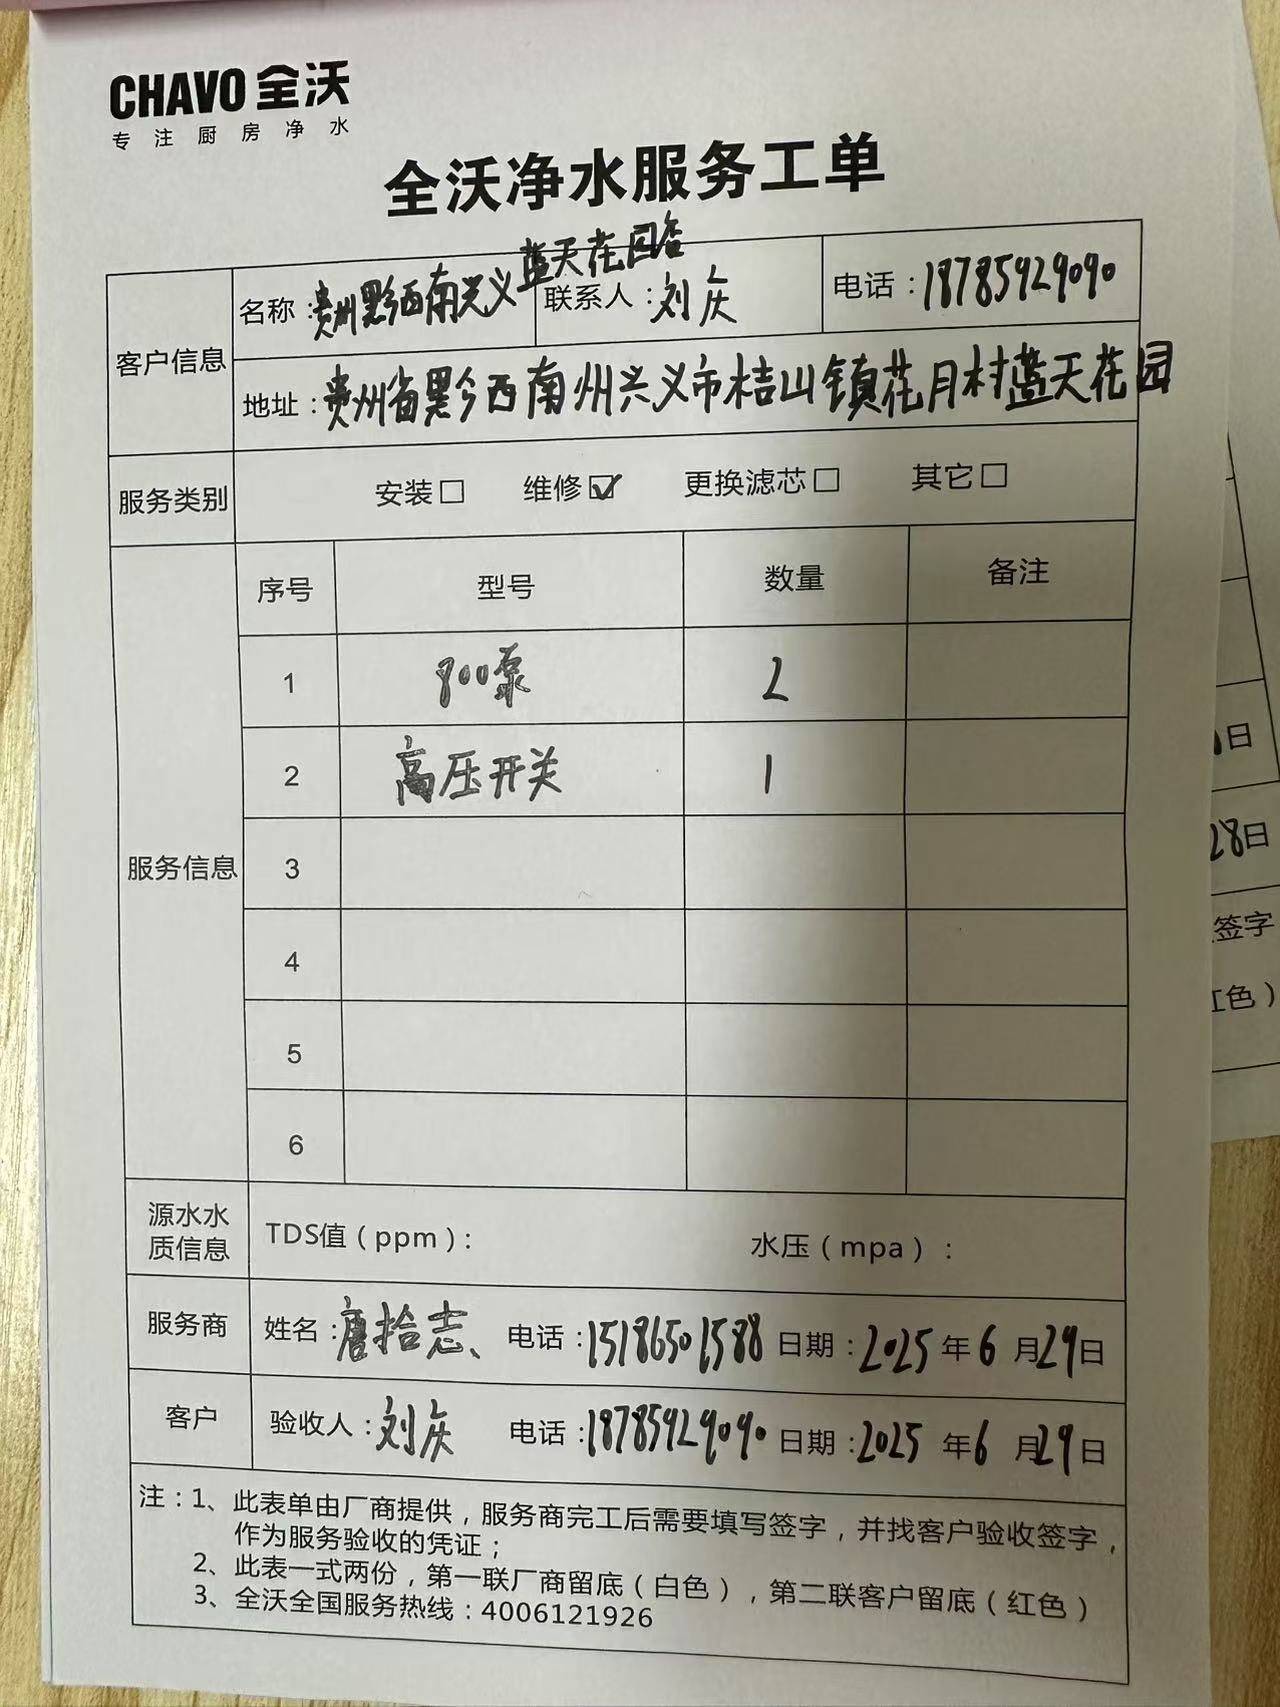 CHAVO 全沃
专注厨房净水
全沃净水服务工单
客户信息
名称：贵州黔西南兴义蓝天花园
联系人：刘庆
电话：18785929090
地址：贵州省黔西南州兴义市桔山镇花月村蓝天花园
服务类别 安装□ 维修☑ 更换滤芯□ 其它□
服务信息
序号 型号 数量 备注
1 800泵 2
2 高压开关 1
3
4
5
6
源水水质信息 TDS值（ppm）： 水压（mpa）：
服务商 姓名：唐拾志、 电话：15186501588 日期：2025年6月29日
客户 验收人：刘庆 电话：18785929090 日期：2025年6月29日
注：1、此表单由厂商提供，服务商完工后需要填写签字，并找客户验收签字，
作为服务验收的凭证；
2、此表一式两份，第一联厂商留底（白色），第二联客户留底（红色）
3、全沃全国服务热线：4006121926
日
28日
签字
色）